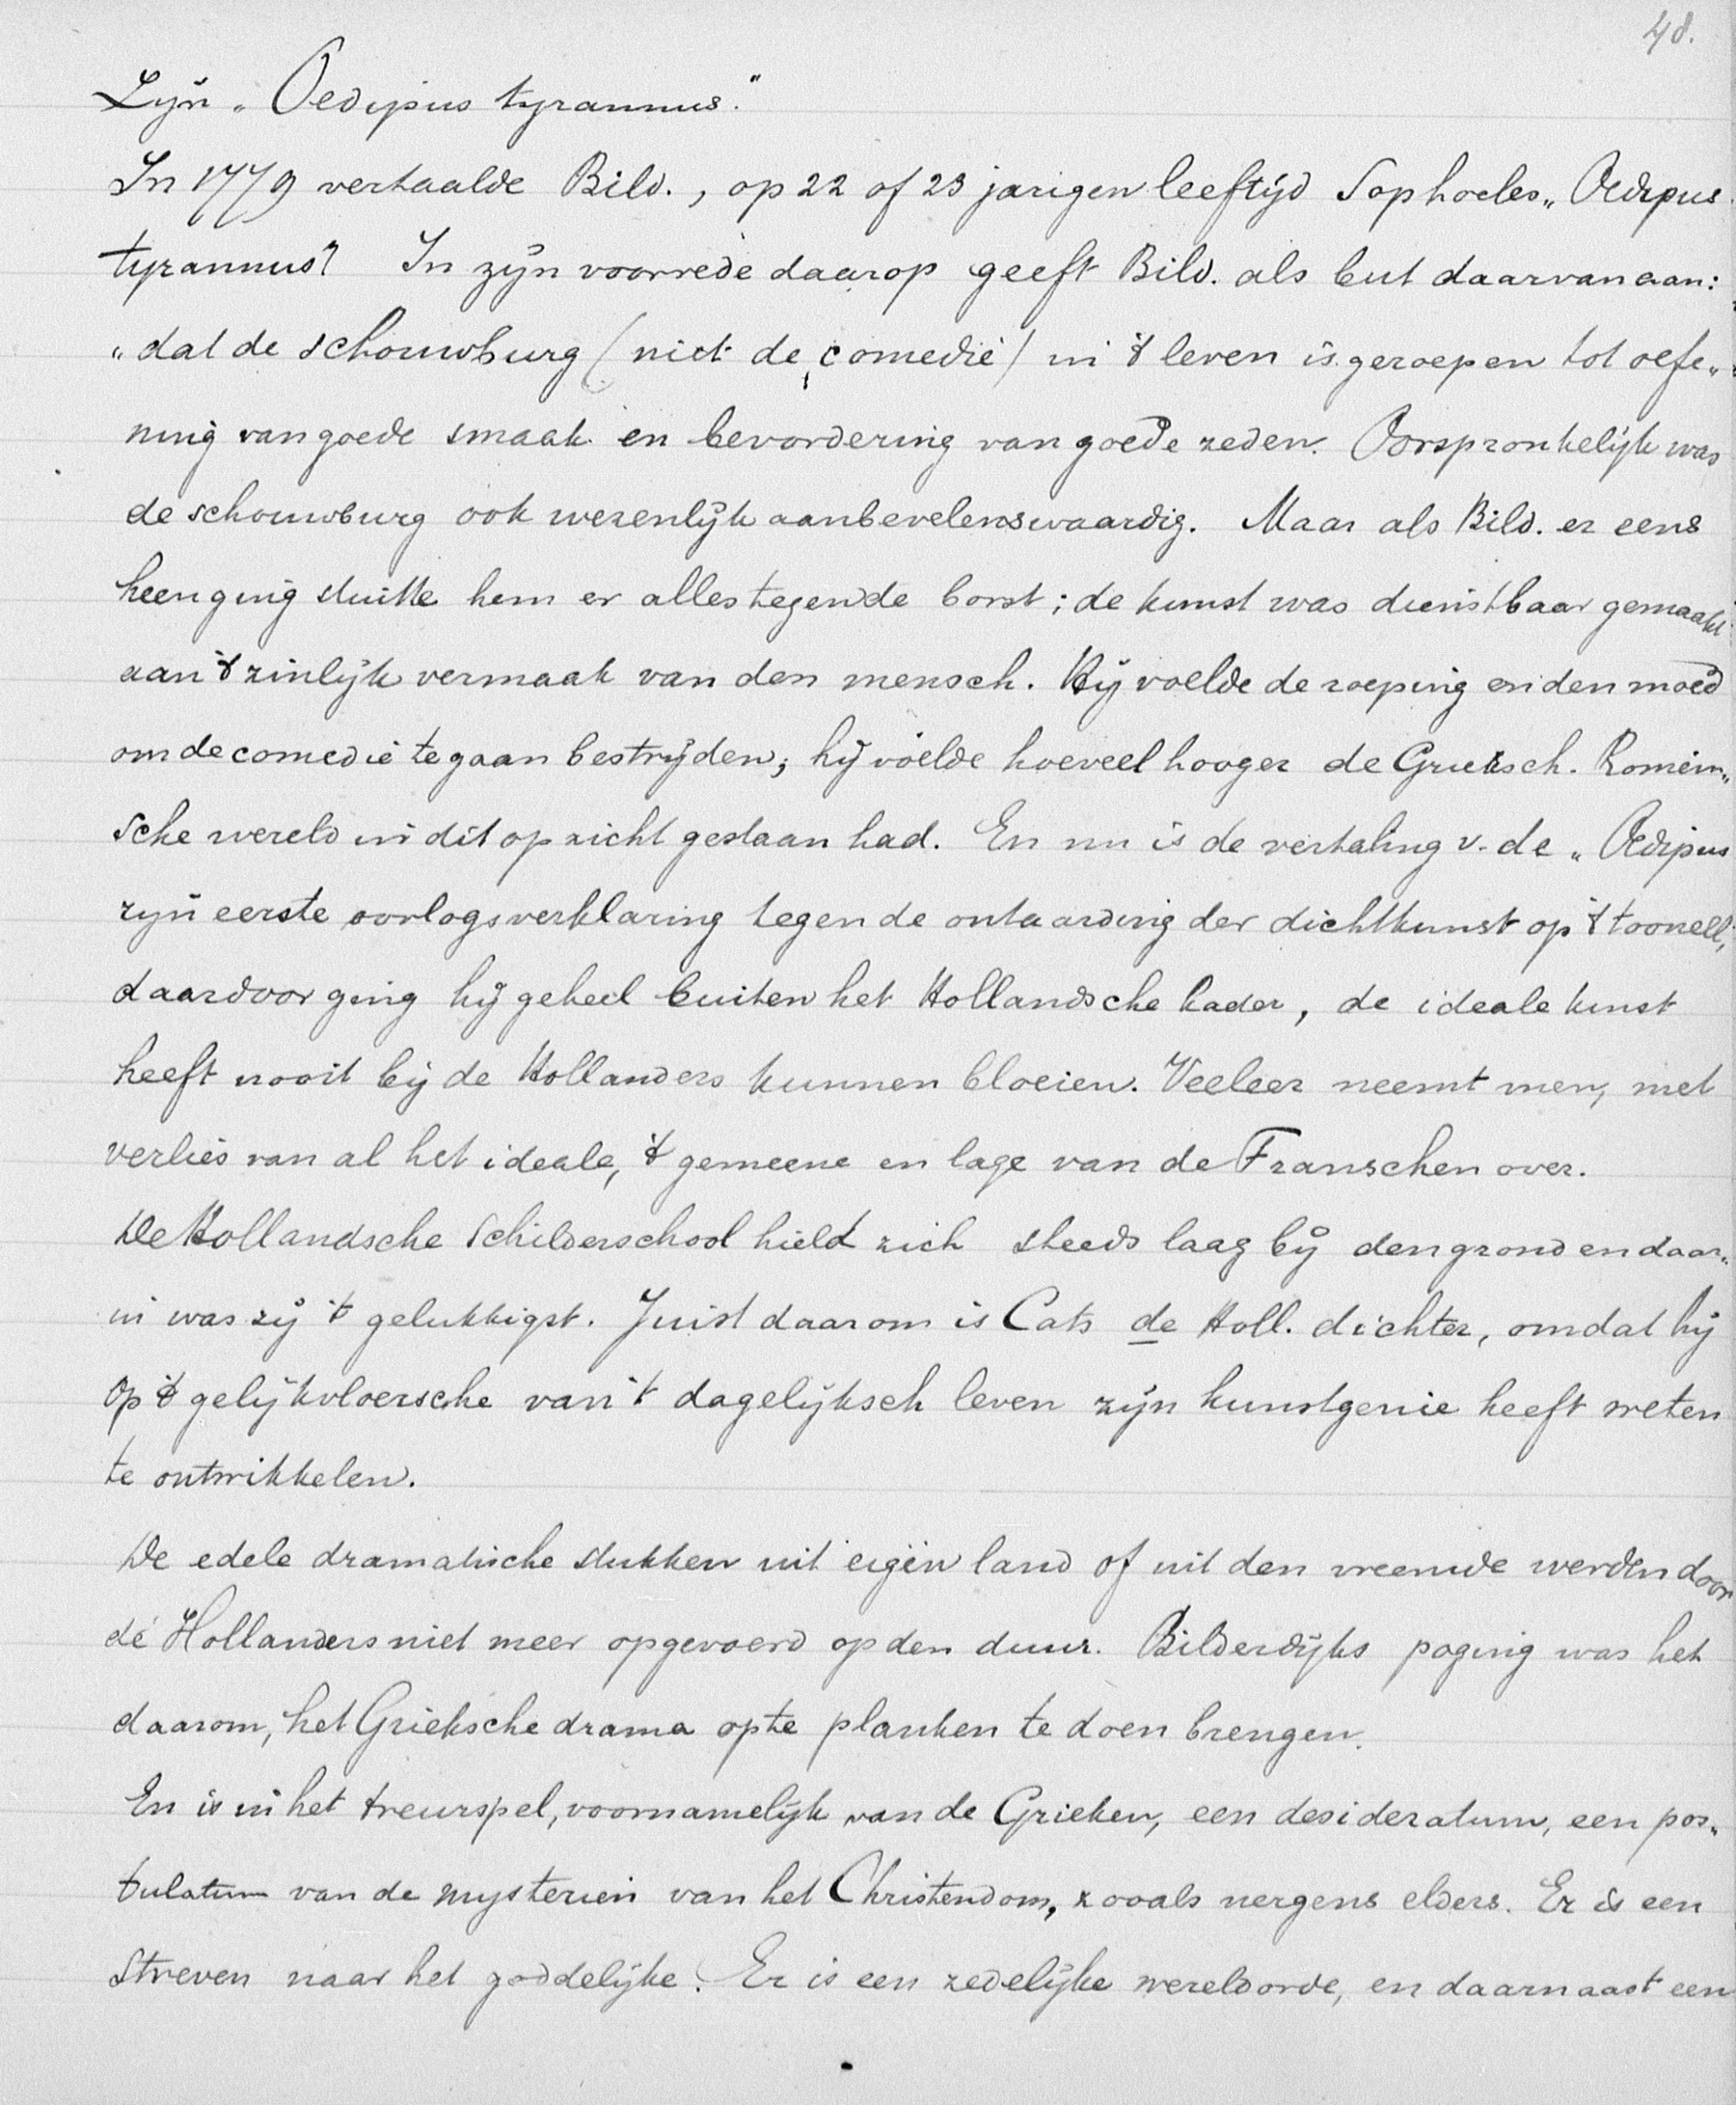 48.
Zijn „Oedipus tyrannus."
In 1779 vertaalde Bild., op 22 of 23 jarigen leeftijd Sophocles „Oedipus
tyrannus" In zijn voorrede daarop geeft Bild. als but daarvan aan:
„dat de schouwburg (niet de comedie) in 't leven is geroepen tot oefe„
ning van goede smaak en bevordering van goede zeden. Oorspronkelijk was
de schouwburg ook wezenlijk aanbevelenswaardig. Maar als Bild. er eens
heenging stuitte hem er alles tegen de borst; de kunst was dienstbaar gemaakt
aan 't zinlijk vermaak van den mensch. Hij voelde de roeping en den moed
om de comedie te gaan bestrijden; hij voelde hoeveel hooger de Grieksch. Romein„
sche wereld in dit opzicht gestaan had. En nu is de vertaling v. de „Oedipus
zijn eerste oorlogsverklaring tegen de ontaarding der dichtkunst op 't tooneel,
daardoor ging hij geheel buiten het Hollandsche kader, de ideale kunst
heeft nooit bij de Hollanders kunnen bloeien. Veeleer neemt men, met
verlies van al het ideale, 't gemeene en lage van de Franschen over.
De Hollandsche Schilderschool hield zich steeds laag bij den grond en daar„
in was zij 't gelukkigst. Juist daarom is Cats de Holl. dichter, omdat hij
op 't gelijkvloersche van 't dagelijksch leven zijn kunstgenie heeft weten
te ontwikkelen.
De edele dramatische stukken uit eigen land of uit den vreemde werden door
de Hollanders niet meer opgevoerd op den duur. Bilderdijks poging was het
daarom, het Grieksche drama op te planken te doen brengen.
En is in het treurspel, voornamelijk van de Grieken, een desideratum, een pos„
tulatum van de mysteriën van het Christendom, zooals nergens elders. Er is een
streven naar het goddelijke. Er is een zedelijke wereldorde, en daarnaast een